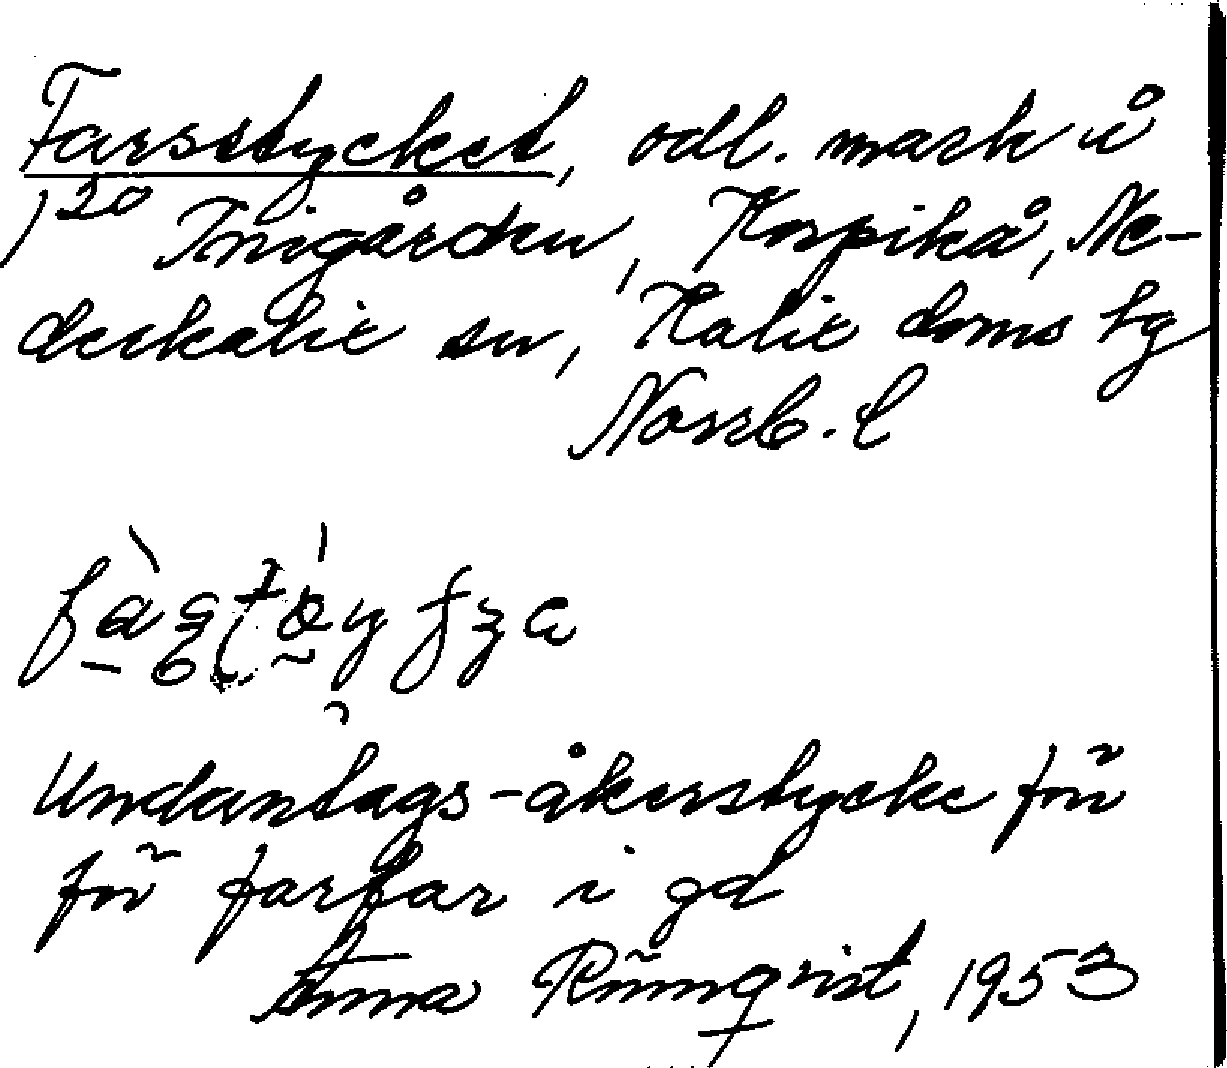 Farsstycket, odl. mark å
1²⁰ Trigården, Korpikå, Ne-
derkalix sn, Kalix doms tg
Norrb. l
Undantags-åkerstycke för
för farfar i gd
Anna Rönnqvist, 1953